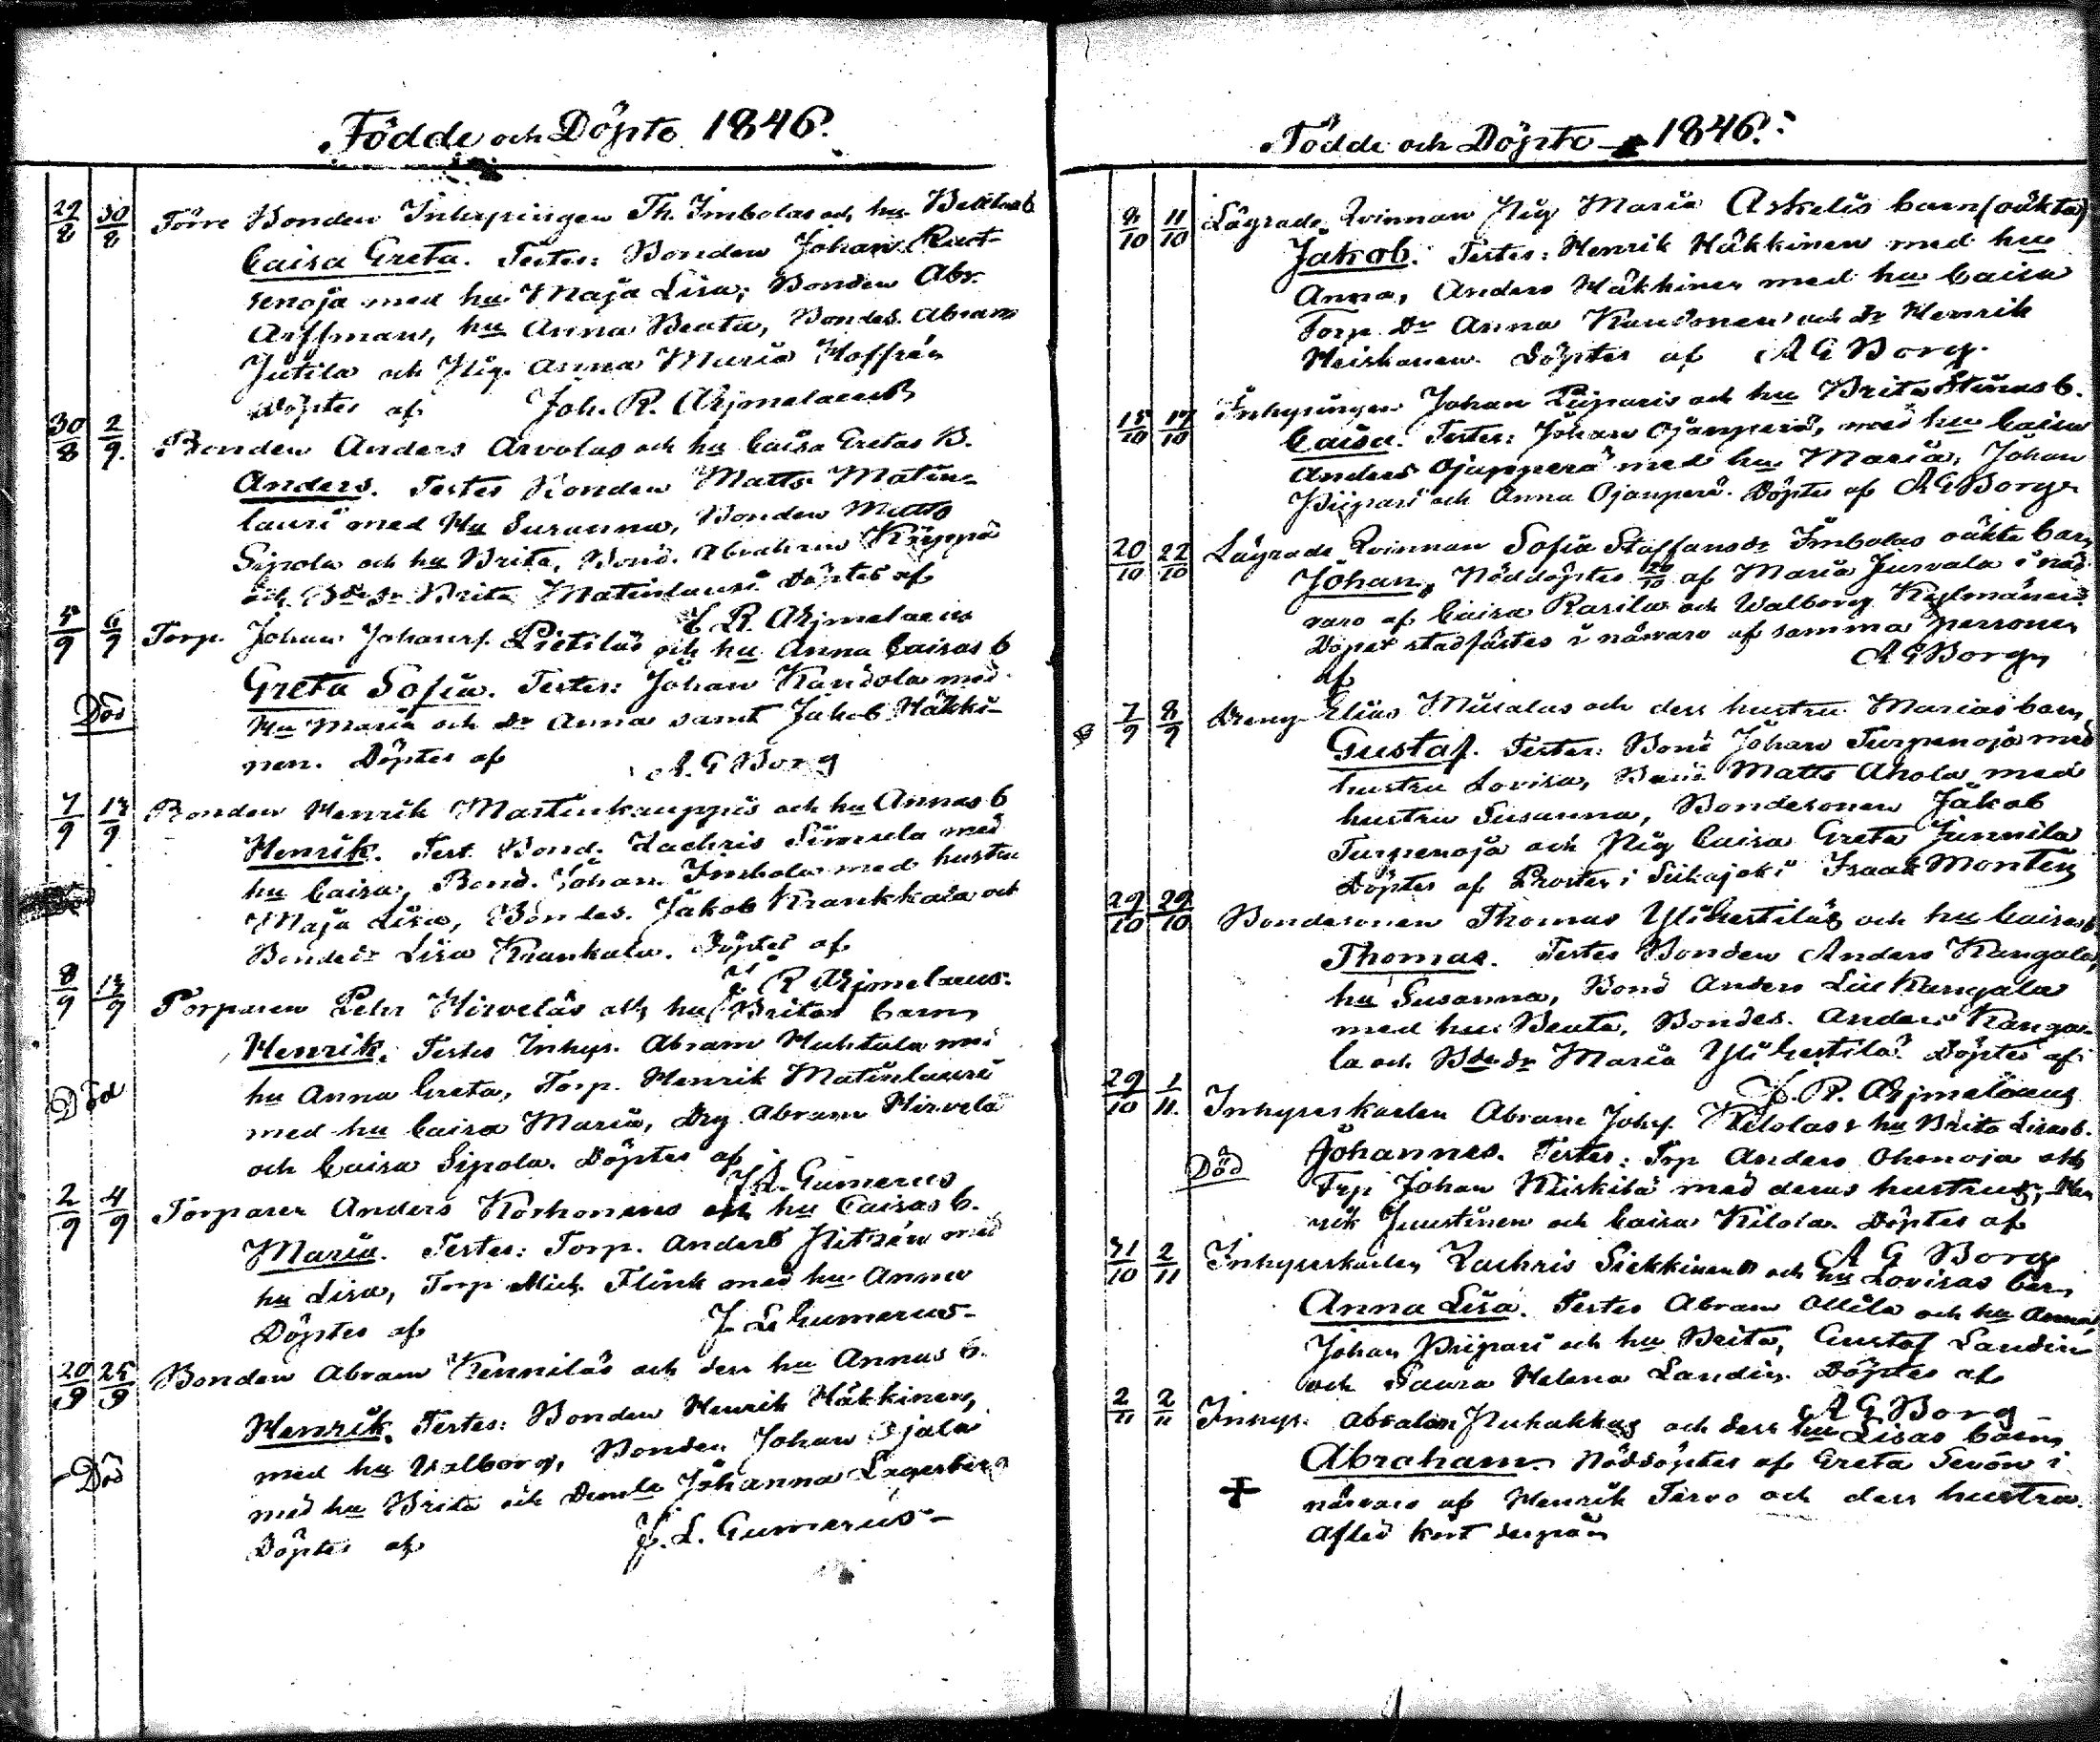 Födde och Döpte 1846.
29/8 30/8 Förre Bonden Inhysingen Th. Imbolas och hu Beatas b
Caisa Greta. Testes: Bonden Johan Raut-
senoja med hu Maja Lisa; Bonden Abr.
Arffman, hu Anna Beata, Bondes. Abram
Jutila och Pig. Anna Maria Hoffrén
Döptes af Joh. R. Ahjmelaeus
30/8 2/9. Bonden Anders Arvolas och hu Caisa Gretas B.
Anders. Testes Bonden Matts Matin-
lauri med Hu Susanna, Bonden Matts
Sipola och hu Brita, Bond. Abraham Knyppä
och Bdedr Brita Matinlauri Döptes af
J. R. Ahjmelaeus
5/9 6/9 Torp. Johan Johanss. Pietiläs och hu Anna Caisas b
Greta Sofia. Testes: Johan Kandola med
Död Hu Maria och Dr Anna samt Jakob Häkki-
nen. Döptes af A. G Borg
7/9 13/9 Bonden Henrik Martinkauppis och hu Annas b
Henrik. Test. Bond. Zachris Simula med
hu Caisa, Bond. Johan Imbola med hustru
Maja Lisa, Bondes. Jakob Krankkala och
Bondedr Lisa Krankala. Döptes af
J R Ahjmelaeus.
8/9 13/9 Torparen Pehr Hirveläs och hu Britas barn
Henrik. Testes Inhys. Abram Huhtala med
hu Anna Greta, Torp. Henrik Matinlauri
Död med hu Caisa Maria, Drg Abram Hirvelä
och Caisa Sipola. Döptes af
J. L. Gumerus
2/9 4/9 Torparen Anders Korhonens och hu Caisas b.
Maria. Testes: Torp. Anders Flitzén med
hu Lisa, Torp Mich. Flink med hu Anna
Döptes af J L Gumerus-
20/9 25/9 Bonden Abram Kenniläs och dess hu Annas b.
Henrik. Testes: Bonden Henrik Häkkinen,
med hu Walborg, Bonden Johan Ojala
Död med hu Brita och Demlle Johanna Lagerberg
Döptes af J. L. Gumerus-
Födde och Döpte 1846.
9/10 11/10 Lägrade Qvinnan Pig Maria Askelis barn (oäkta)
Jakob. Testes: Henrik Häkkinen med hu
Anna, Anders Häkkinen med hu Caisa
Torp. Dr Anna och Dr Henrik
Heiskanen. Döptes af A G Borg.
15/10 17/10 Inhysingen Johan Piiparis och hu Brita Stinas b.
Caisa. Testes: Johan Ojanperä, med hu Caisa
Anders Ojanperä med hu Maria, Johan
Piipari och Anna Ojanperä. Döptes af A G Borg
20/10 22/10 Lägrade Qvinnan Sofia Staffansdr Imbolas oäkta barn
Johan, Nöddöptes 20/10 af Maria Jurvala i när-
varo af Caisa Rasila och Walborg
Dopet stadfästes i närvaro af samma personer
af A G Borg
7/9 8/9 Dreng Elias Miisalas och dess hustru Marias barn
Gustaf. Testes: Bond Johan Turpenoja med
hustru Lovisa, Bond Matts Ahola med
hustru Susanna, Bondesonen Jakob
Turpenoja och Pig Caisa Greta Junnila
Döptes af Prosten i Siikajoki Isaak Montin
29/10 29/10 Bondesonen Thomas Ylikestiläs och hu Caisas b.
Thomas. Testes Bonden Anders Kangala,
hu Susanna, Bond Anders Liukangala
med hu Beata, Bondes. Anders Kanga-
la och Bdedr Maria Ylikestilä. Döptes af
J. R. Ahjmelaeus
29/10 1/11. Inhyseskarlen Abram Johss. Kilolas & hu Brita Lisas b.
Johannes. Testes: Trp Anders Ohenoja och
Död Trp Johan Kiiskilä med deras hustrur, Hen
rik Juustinen och Caisa Kilola. Döptes af
A G Borg
31/10 2/11 Inhyseskarlen Zachris Siekkinens och hu Lovisas barn
Anna Lisa. Testes Abram Ollila och hu Anna,
Johan Piipari och hu Brita, Gustaf Landin
och Saara Helena Landin. Döptes af
A G Borg
2/11 2/11 Inhys. Absalon och dess hu Lisas barn
Abraham. Nöddöptes af Greta Sevón i
+ närvaro af Henrik Tervo och dess hustru.
Afled kort derpå